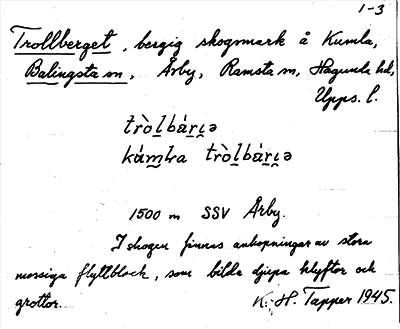 1-3
Trollberget, bergig skogsmark å Kumla,
Balingsta sn, Årby, Ramsta sn, Hagunda hd,
Upps. l.
tròlbárı̯ə
kámla tròlbárı̯ə
1500 m SSV Årby.
I skogen finnas anhopningar av stora
mossiga flyttblock, som bilda djupa klyftor och
grottor. K. H. Tapper 1945.